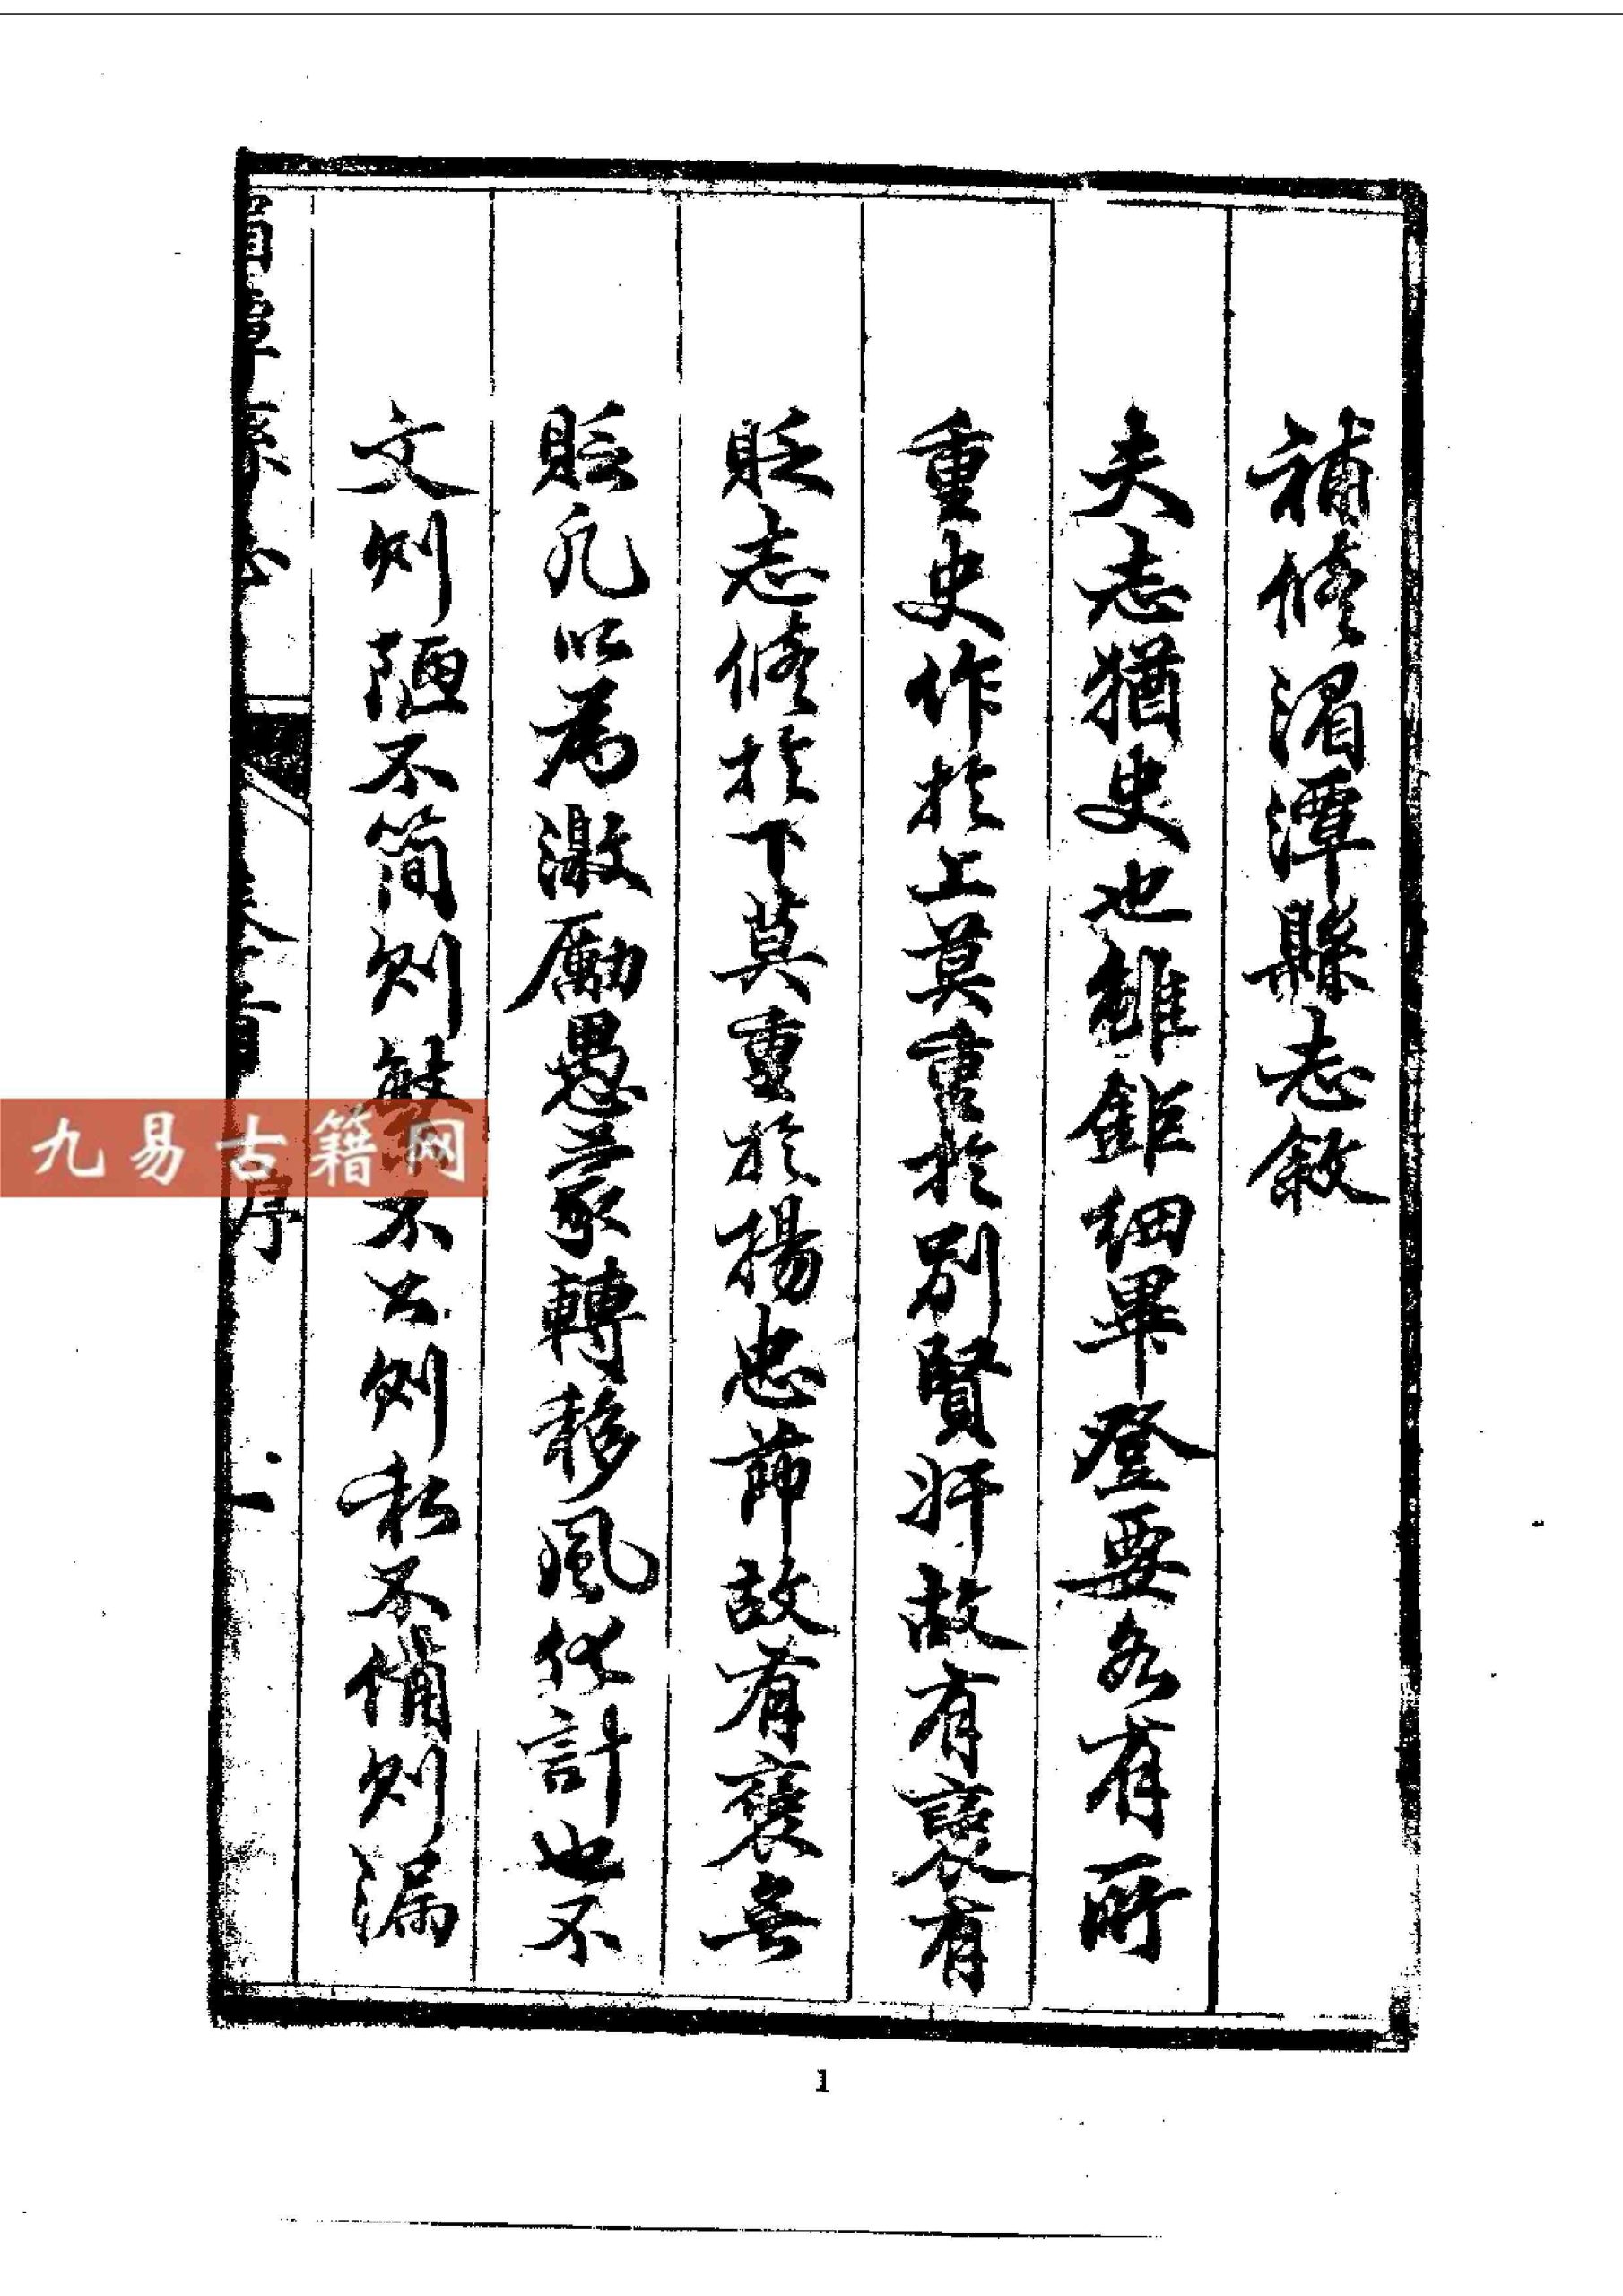 補修湄潭縣志敘
夫志猶史也雖鉅細畢登要各有所
重史作於上莫重於別賢奸故有褒有
貶志修於下莫重於揚忠節故有褒無
貶凡以為激厲愚蒙轉移風俗計也不
文則陋不簡則繁不公則私不備則漏
湄潭縣志 卷首 序 一
九易古籍网
1